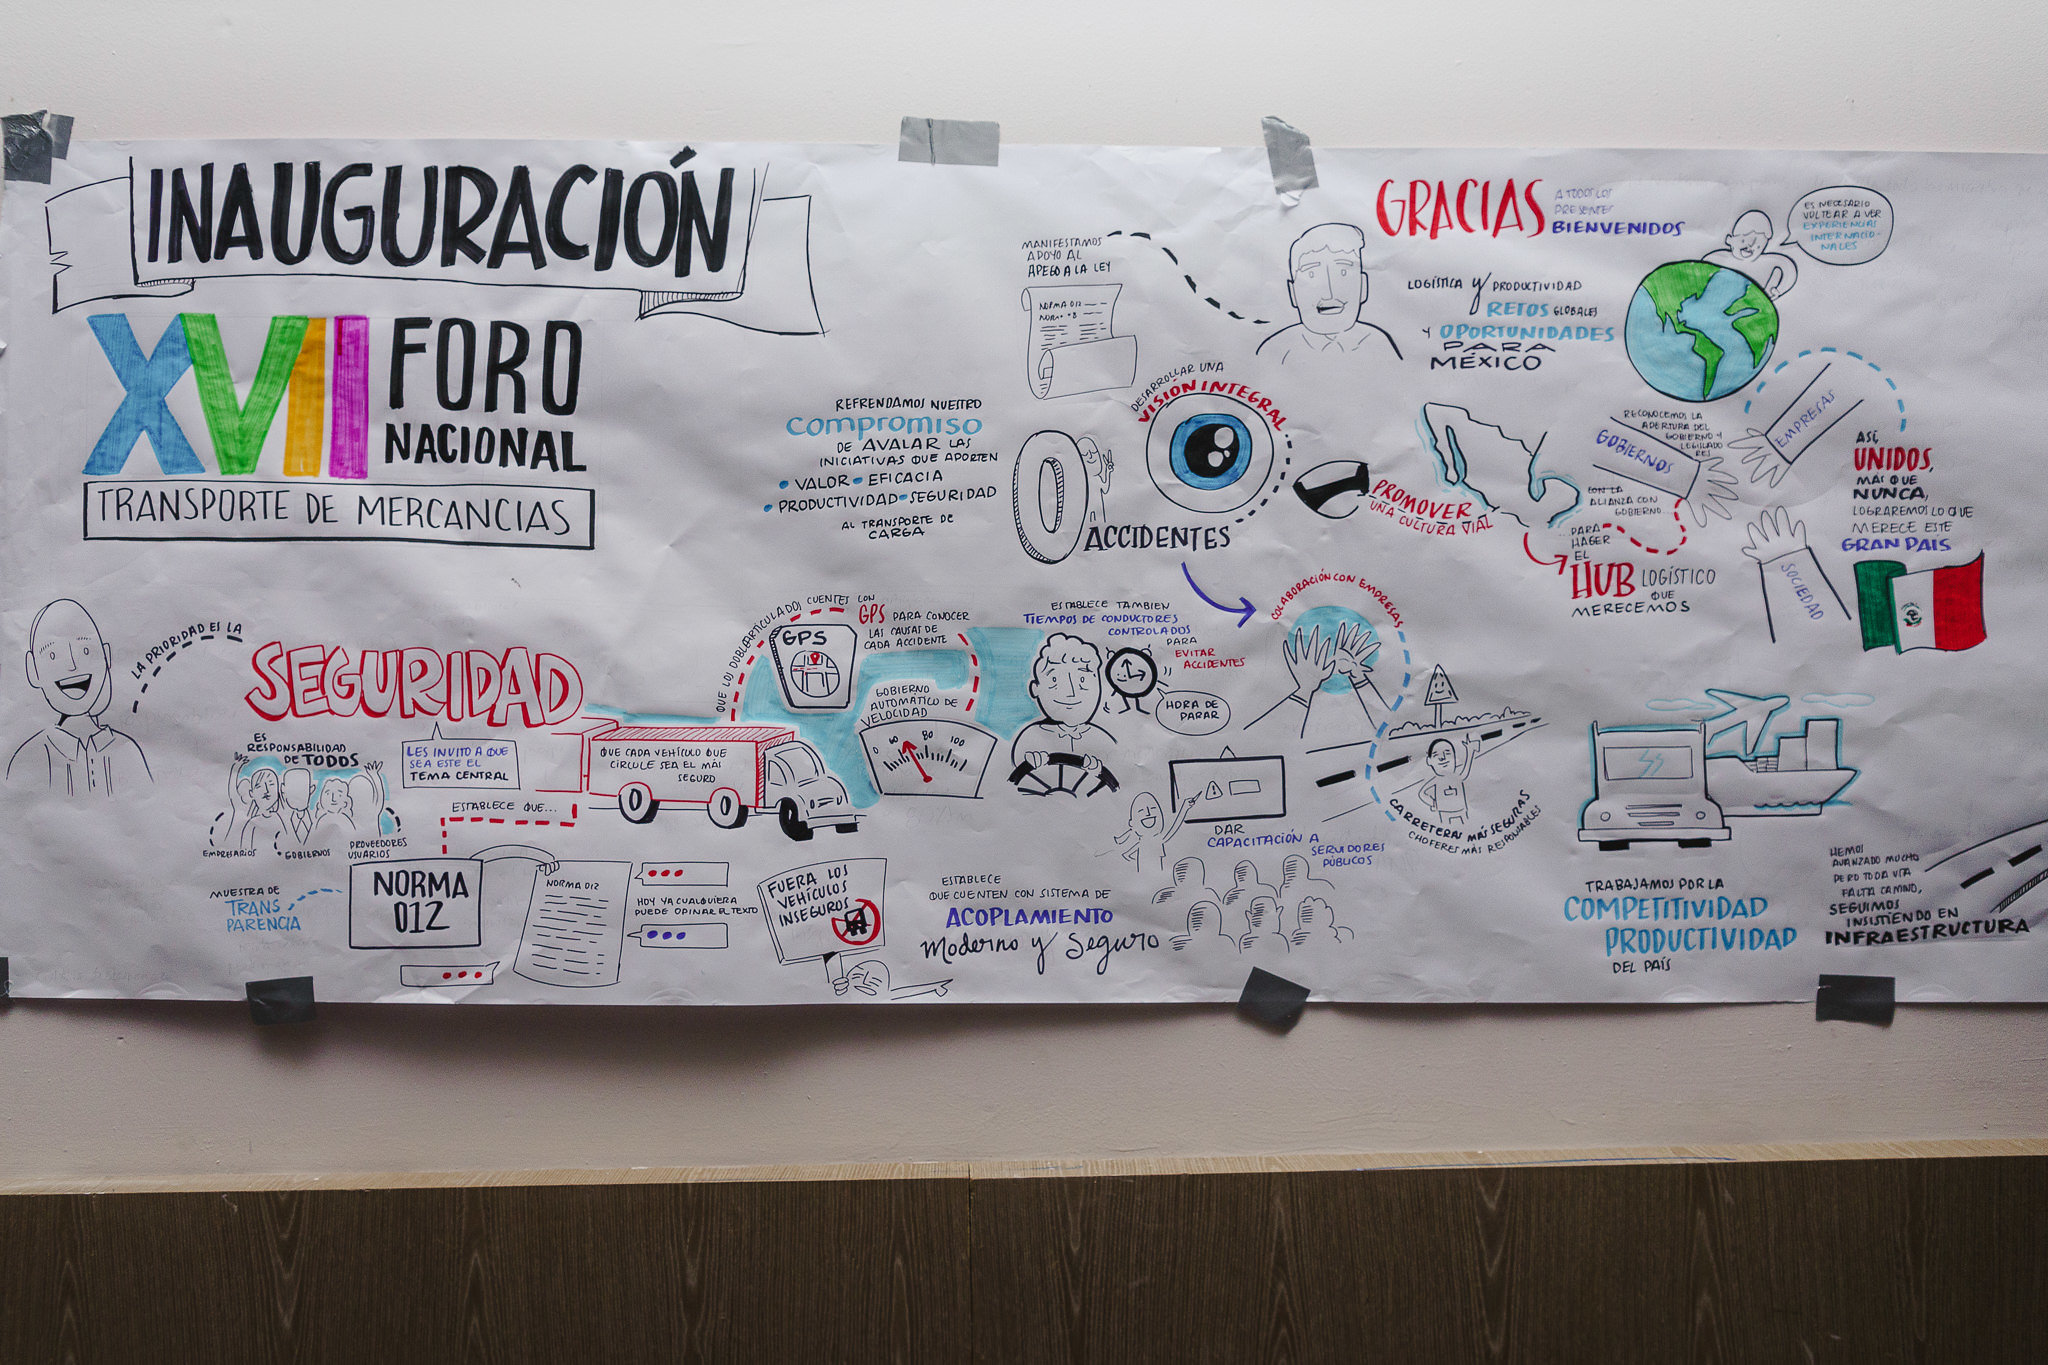 INAUGURACIÓN
XVII
FORO
NACIONAL
TRANSPORTE DE MERCANCÍAS
LA PRIORIDAD ES LA
SEGURIDAD
ES
RESPONSABILIDAD
DE TODOS
EMPRESARIOS
GOBIERNOS
PROVEEDORES
USUARIOS
LES INVITO A QUE
SEA ESTE EL
TEMA CENTRAL
ESTABLECE QUE...
MUESTRA DE
TRANS
PARENCIA
NORMA
012
NORMA 012
HOY YA CUALQUIERA
PUEDE OPINAR EL TEXTO
QUE CADA VEHÍCULO QUE
CIRCULE SEA EL MÁS
SEGURO
QUE LOS DOBLEARTICULADOS CUENTEN CON
GPS PARA CONOCER
LAS CAUSAS DE
CADA ACCIDENTE
GPS
GOBIERNO
AUTOMÁTICO DE
VELOCIDAD
0 60 80 100
FUERA LOS
VEHÍCULOS
INSEGUROS
ESTABLECE
QUE CUENTEN CON SISTEMA DE
ACOPLAMIENTO
Moderno y Seguro
REFRENDAMOS NUESTRO
COMPROMISO
DE AVALAR LAS
INICIATIVAS QUE APORTEN
• VALOR • EFICACIA
• PRODUCTIVIDAD • SEGURIDAD
AL TRANSPORTE DE
CARGA
MANIFESTAMOS
APOYO AL
APEGO A LA LEY
NORMA 012
DESARROLLAR UNA
VISIÓN INTEGRAL
0
ACCIDENTES
PROMOVER
UNA CULTURA VIAL
ESTABLECE TAMBIEN
TIEMPOS DE CONDUCTORES
CONTROLADOS
PARA
EVITAR
ACCIDENTES
HORA DE
PARAR
COLABORACIÓN CON EMPRESAS
DAR
CAPACITACIÓN A
SERVIDORES
PÚBLICOS
CARRETERAS MÁS SEGURAS
CHOFERES MÁS RESPONSABLES
GRACIAS
A TODOS LOS
PRESENTES
BIENVENIDOS
LOGÍSTICA Y PRODUCTIVIDAD
RETOS GLOBALES
Y OPORTUNIDADES
PARA
MÉXICO
ES NECESARIO
VOLTEAR A VER
EXPERIENCIAS
INTERNACIO-
NALES
RECONOCEMOS LA
APERTURA DEL
GOBIERNO Y
LEGISLADO
RES
GOBIERNOS
EMPRESAS
SOCIEDAD
CON LA
ALIANZA CON
GOBIERNO
PARA
HACER
EL
HUB LOGÍSTICO
QUE
MERECEMOS
ASÍ,
UNIDOS,
MÁS QUE
NUNCA,
LOGRAREMOS LO QUE
MERECE ESTE
GRAN PAÍS
TRABAJAMOS POR LA
COMPETITIVIDAD
PRODUCTIVIDAD
DEL PAÍS
HEMOS
AVANZADO MUCHO
PERO TODAVÍA
FALTA CAMINO,
SEGUIMOS
INSISTIENDO EN
INFRAESTRUCTURA